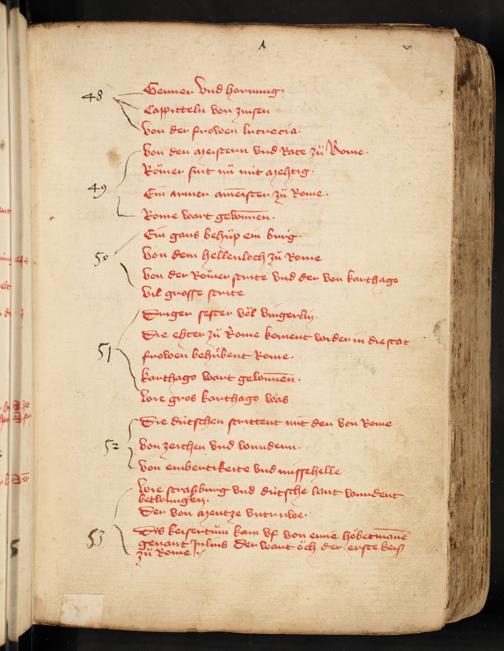 48 Genner vnd hornung
Cappitteln von zinsen
von der frowen lucrecia
von den meistern vnd Rate zů Rome
Römer sint nü mit mehtig
49 Ein armer ameister zů Rome
Rome wart gewonnen
Ein gans behüp ein burg
50 Von dem hellenloch zů Rome
Von der Römer strite vnd der von karthago
vil grosse strite
Driger sester völ vingerlin
Die ehter zů Rome koment wider in die stat
51 frowen behübent Rome
karthago wart gewonnen
wie gros karthago was
Die dütschen strittent mit den von Rome
52 von zeichen vnd wundern
von einbertikeite vnd missehelle
wie straßburg vnd dütsche lant wurdent
betwungen
Der von mentze vntruwe
53 Das keisertům kam vf von eime höbetmanne
genant Julius der wart öch der erste keiser
zů Rome